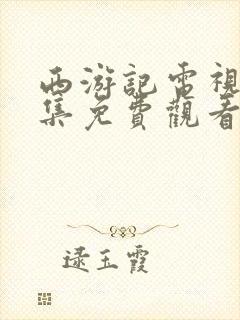 西游記電視
集免費觀看
逯玉霞